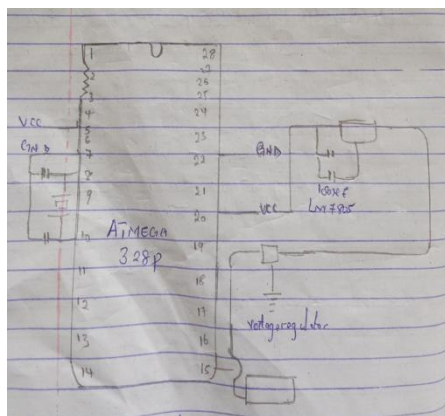 1
2
3
4
5
6
7
8
9
10
11
12
13
14
28
27
26
25
24
23
22
21
20
19
18
17
16
15
VCC
GND
ATMEGA
328p
GND
VCC
LM7805
voltage regulator